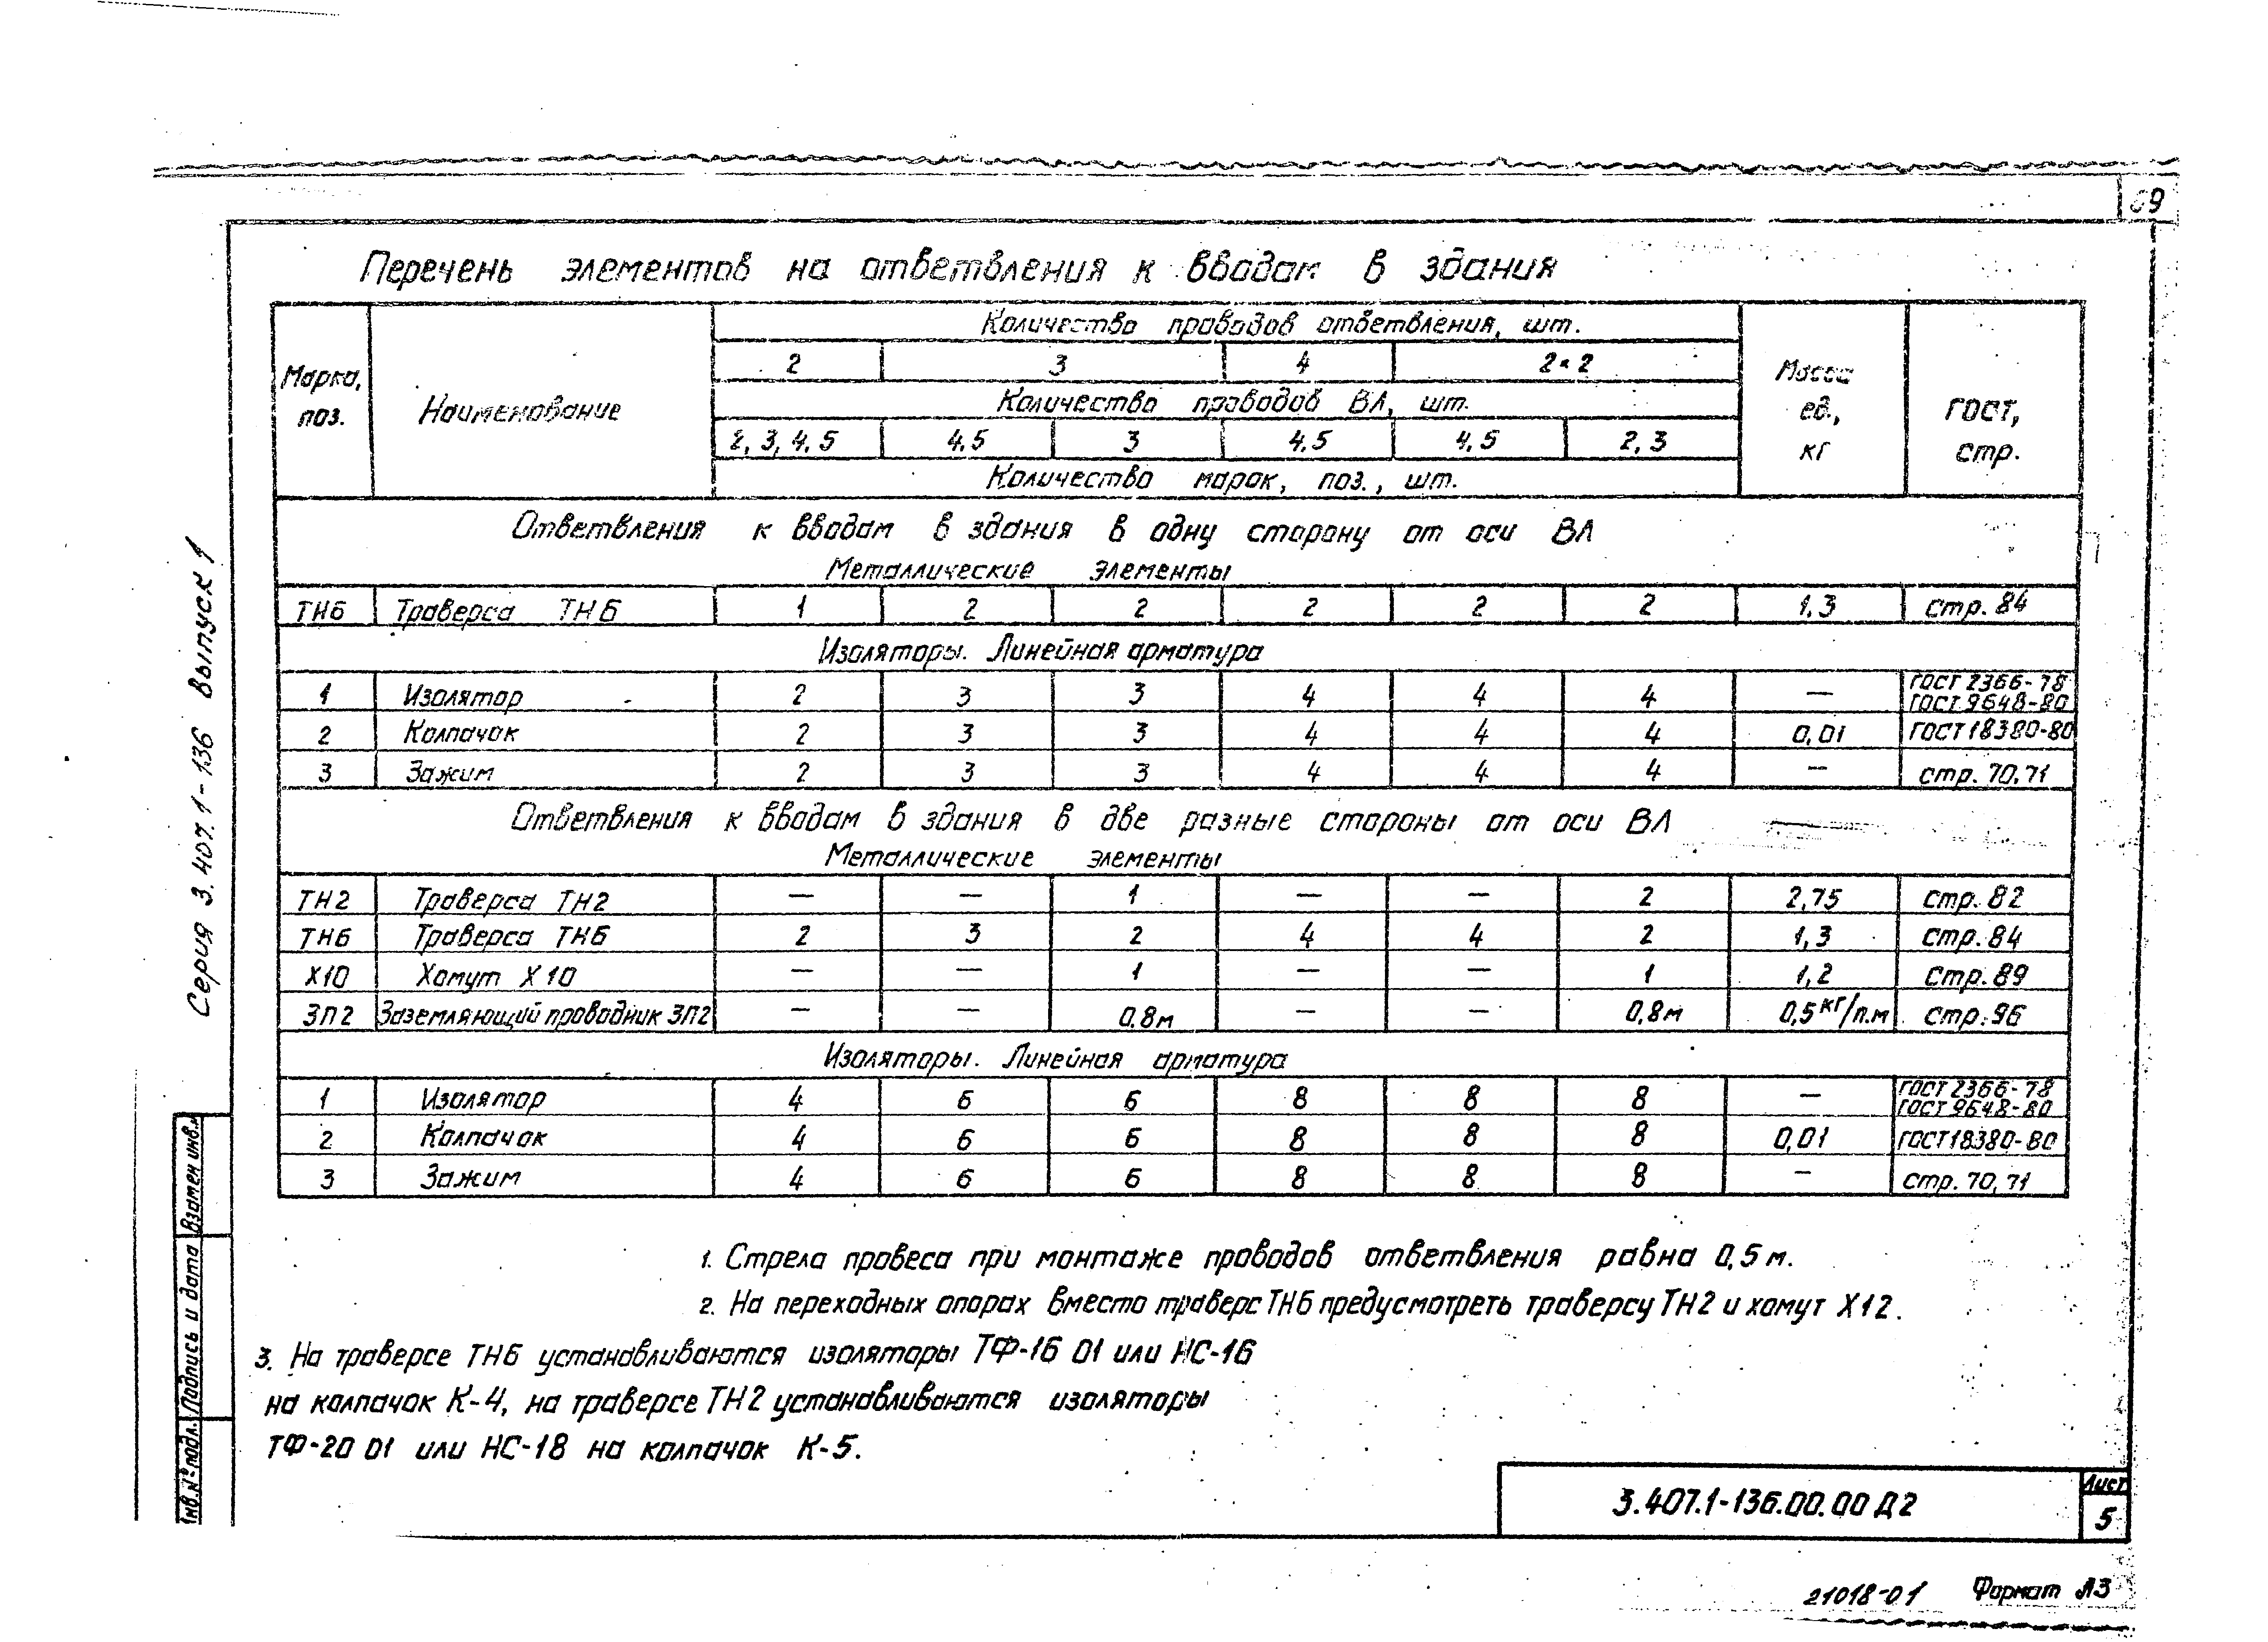 Перечень элементов на ответвления к вводам в здания
Марка, поз. Наименование Количество проводов ответвления, шт. Масса ед., кг ГОСТ, стр.
2 3 4 2×2
Количество проводов ВЛ, шт.
2, 3, 4, 5 4,5 3 4,5 4,5 2,3
Количество марок, поз., шт.
Ответвления к вводам в здания в одну сторону от оси ВЛ
Металлические элементы
ТН6 Траверса ТН6 1 2 2 2 2 2 1,3 стр. 84
Изоляторы. Линейная арматура
1 Изолятор 2 3 3 4 4 4 — ГОСТ 2366-78 ГОСТ 9648-80
2 Колпачок 2 3 3 4 4 4 0,01 ГОСТ 18380-80
3 Зажим 2 3 3 4 4 4 — стр. 70,71
Ответвления к вводам в здания в две разные стороны от оси ВЛ
Металлические элементы
ТН2 Траверса ТН2 — — 1 — — 2 2,75 стр. 82
ТН6 Траверса ТН6 2 3 2 4 4 2 1,3 стр. 84
Х10 Хомут Х10 — — 1 — — 1 1,2 стр. 89
ЗП2 Заземляющий проводник ЗП2 — — 0,8м — — 0,8м 0,5кг/п.м стр. 96
Изоляторы. Линейная арматура
1 Изолятор 4 6 6 8 8 8 — ГОСТ 2366-78 ГОСТ 9648-80
2 Колпачок 4 6 6 8 8 8 0,01 ГОСТ 18380-80
3 Зажим 4 6 6 8 8 8 — стр. 70,71
1. Стрела провеса при монтаже проводов ответвления равна 0,5 м.
2. На переходных опорах вместо траверс ТН6 предусмотреть траверсу ТН2 и хомут Х12.
3. На траверсе ТН6 устанавливаются изоляторы ТФ-16 01 или НС-16
на колпачок К-4, на траверсе ТН2 устанавливаются изоляторы
ТФ-20 01 или НС-18 на колпачок К-5.
Серия 3.407.1-136 Выпуск 1
Взамен инв.№
Подпись и дата
Инв.№подл.
3.407.1-136.00.00 Д2
Лист
5
21018-01 Формат А3